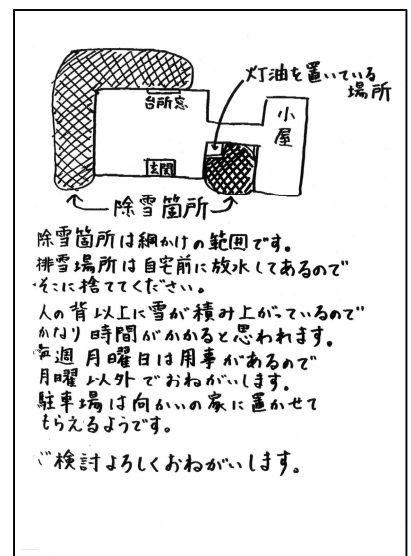 灯油を置いている
場所
台所窓
小屋
玄関
除雪箇所
除雪箇所は網かけの範囲です。
排雪場所は自宅前に放水してあるので
そこに捨ててください。
人の背以上に雪が積み上がっているので
かなり時間がかかると思われます。
毎週月曜日は用事があるので
月曜以外でおねがいします。
駐車場は向かいの家に置かせて
もらえるようです。
ご検討よろしくおねがいします。